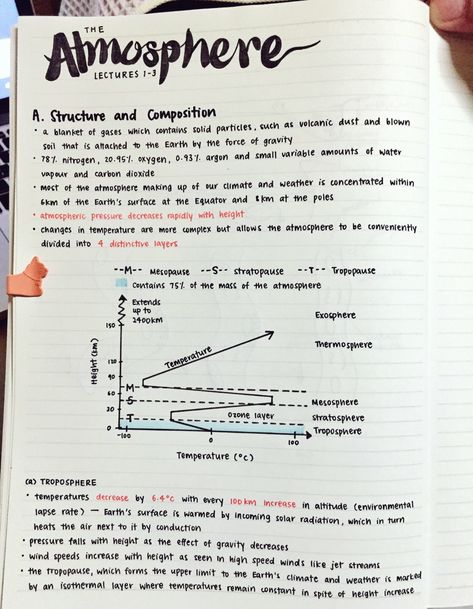 THE
Atmosphere
LECTURES 1-3
A. Structure and Composition
• a blanket of gases which contains solid particles, such as volcanic dust and blown
soil that is attached to the Earth by the force of gravity
• 78% nitrogen, 20.95% oxygen, 0.93% argon and small variable amounts of water
vapour and carbon dioxide
• most of the atmosphere making up of our climate and weather is concentrated within
16km of the Earth's surface at the Equator and 8km at the poles
• atmospheric pressure decreases rapidly with height
• changes in temperature are more complex but allows the atmosphere to be conveniently
divided into 4 distinctive layers
--M-- Mesopause --S-- stratopause --T-- Tropopause
Contains 75% of the mass of the atmosphere
Extends
up to
2400km
Height (km)
150
120
90
60
30
0
M
S
T
Temperature
ozone layer
Exosphere
Thermosphere
Mesosphere
stratosphere
Troposphere
-100
0
100
Temperature (°C)
(a) TROPOSPHERE
• temperatures decrease by 6.4°C with every 100km increase in altitude (environmental
lapse rate) — Earth's surface is warmed by incoming solar radiation, which in turn
heats the air next to it by conduction
• pressure falls with height as the effect of gravity decreases
• wind speeds increase with height as seen in high speed winds like jet streams
• the tropopause, which forms the upper limit to the Earth's climate and weather is marked
by an isothermal layer where temperatures remain constant in spite of height increase